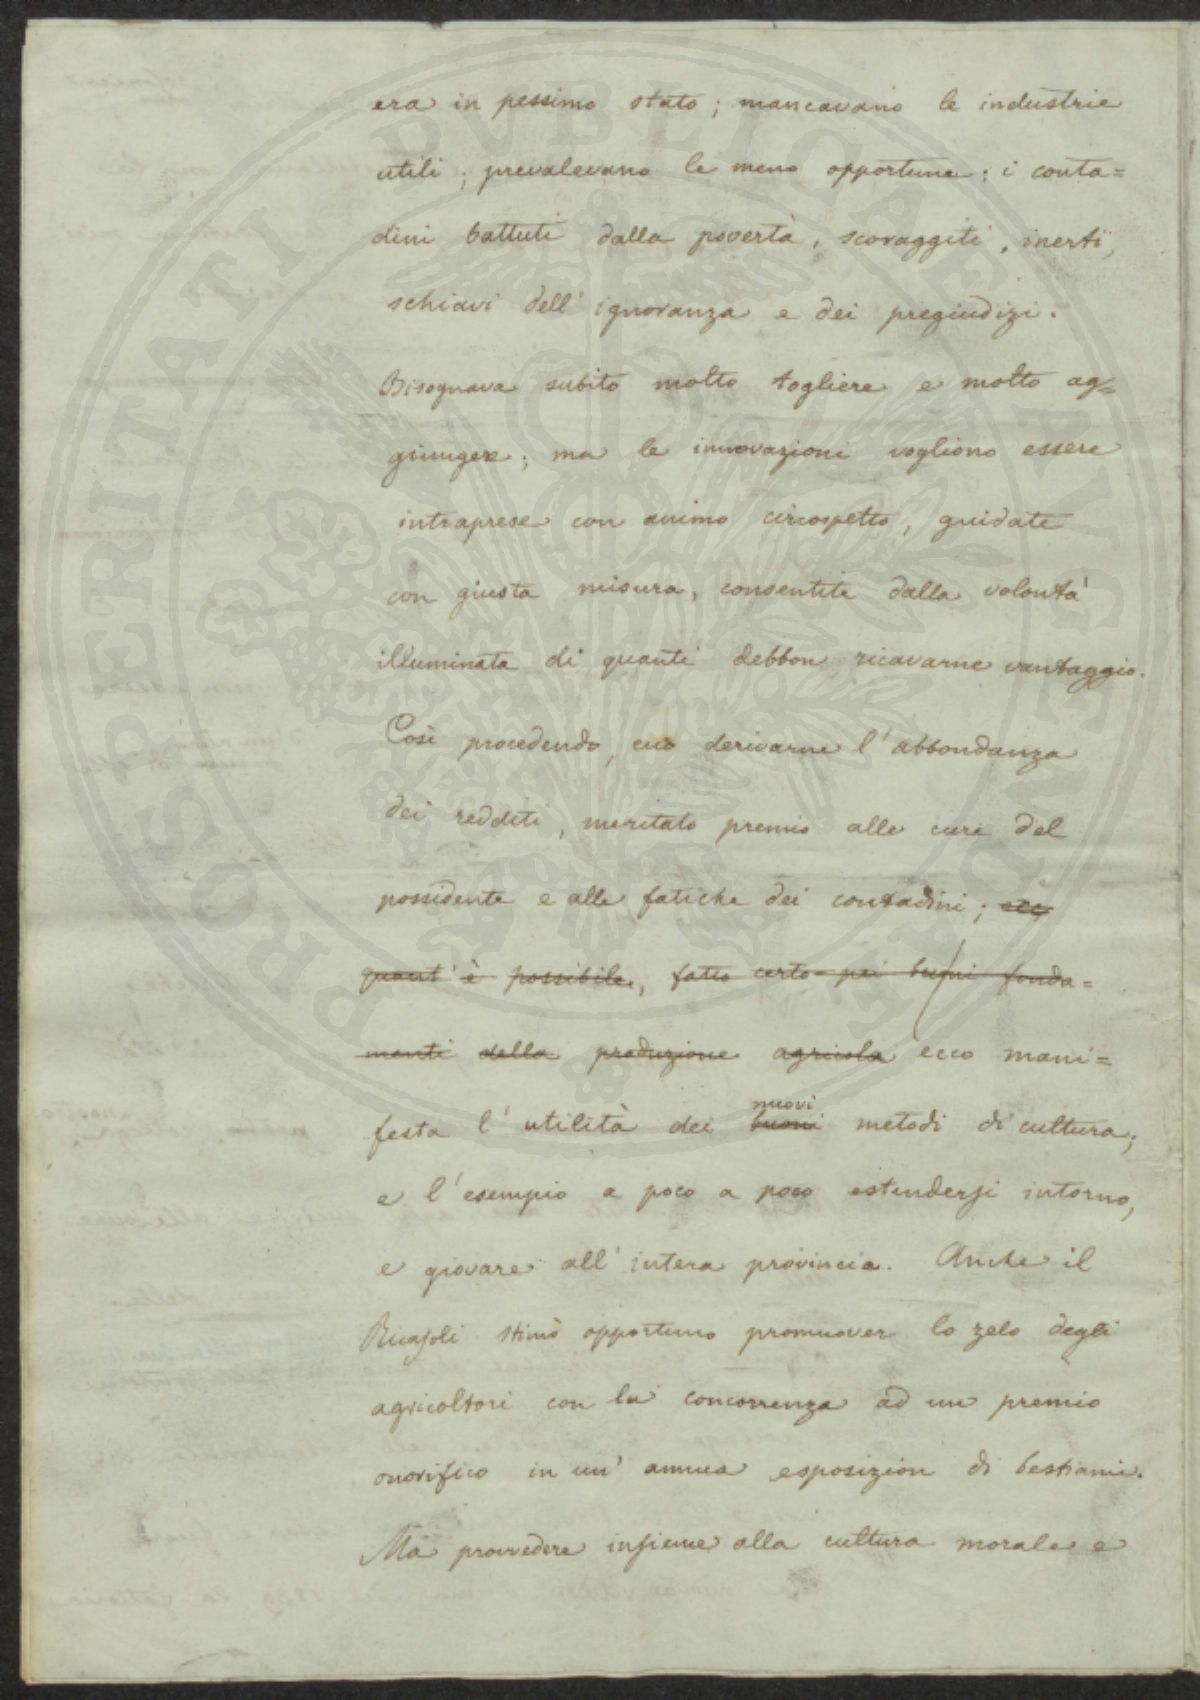 era in pessimo stato; mancavano le industrie
utili; prevalevano le meno opportune; i conta=
dini battuti dalla povertà, scoraggiti, inerti,
schiavi dell'ignoranza e dei pregiudizi.
Bisognava subito molto togliere e molto ag=
giunger; ma le innovazioni vogliono essere
intraprese con animo circospetto, guidate
con giusta misura, consentite dalla volontà
illuminata di quanti debbon ricavarne vantaggio.
Così procedendo, ecco derivarne l'abbondanza
dei redditi, meritato premio alle cure del
possidente e alle fatiche dei contadini; ecc
quant'è possibile, fatto certo pei buoni fonda=
menti della produzione agricola ecco mani=
festa l'utilità dei buoni metodi di cultura;
nuovi
e l'esempio a poco a poco estendersi intorno,
e giovare all'intera provincia. Anche il
Ricasoli stimò opportuno promuover lo zelo degli
agricoltori con la concorrenza ad un premio
onorifico in un'annua esposizion di bestiame.
Ma provvedere insieme alla cultura morale e
PROSPERITATI PVBLICAE AVGENDAE